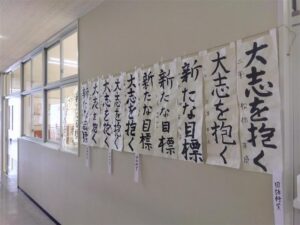 大志を抱く
大志を抱く
新たな目標
新たな目標
新たな目標
大志を抱く
大志を抱く
大志を抱く
大志を抱く
新たな目標